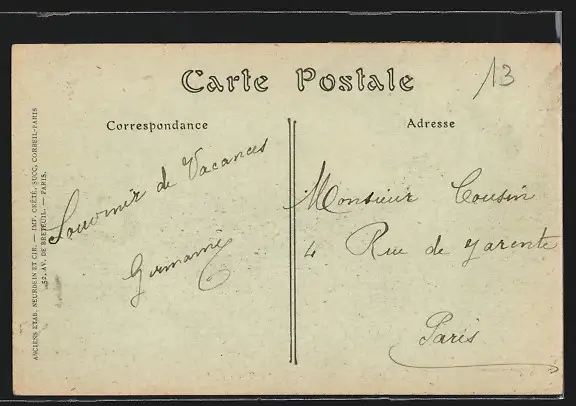 Carte Postale
13
Correspondance
Adresse
Souvenir de Vacances
Germaine
Monsieur Cousin
4 Rue de Tarente
Paris
ANCIENS ETAB. NEURDEIN ET CIE. — IMP. CRÉTÉ, SUCC. CORBEIL-PARIS
52, AV. DE BRETEUIL. — PARIS.